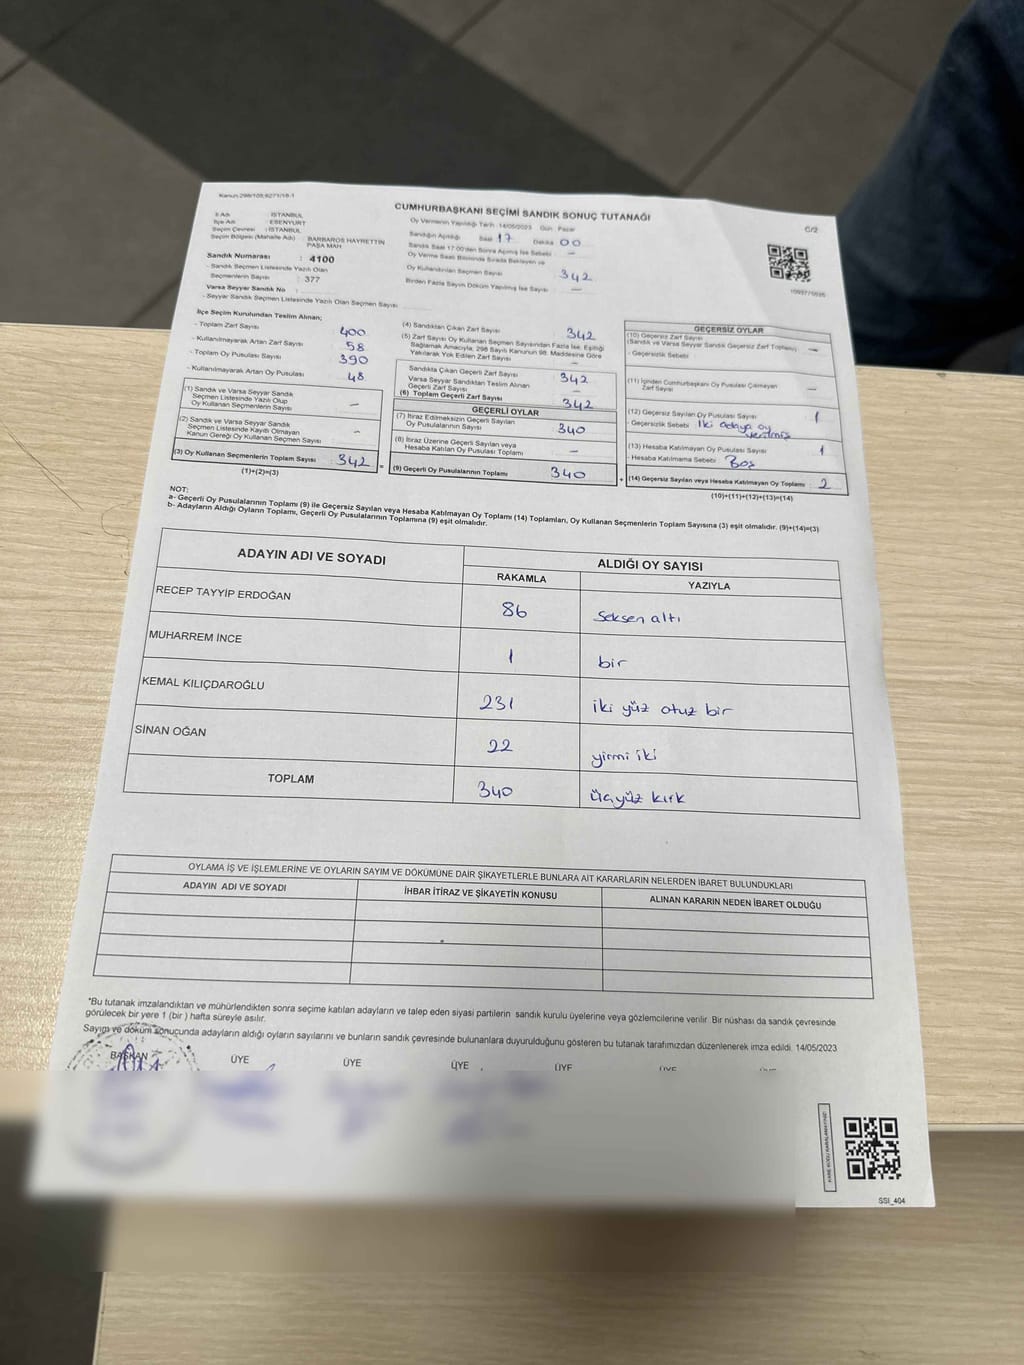 Kanun:298/105;6271/18-1
CUMHURBAŞKANI SEÇİMİ SANDIK SONUÇ TUTANAĞI
C/2
İl Adı : İSTANBUL
İlçe Adı : ESENYURT
Seçim Çevresi : İSTANBUL
Seçim Bölgesi (Mahalle Adı) : BARBAROS HAYRETTİN PAŞA MAH
Sandık Numarası : 4100
- Sandık Seçmen Listesinde Yazılı Olan
Seçmenlerin Sayısı : 377
Varsa Seyyar Sandık No :
- Seyyar Sandık Seçmen Listesinde Yazılı Olan Seçmen Sayısı
Oy Vermenin Yapıldığı Tarih :14/05/2023 Gün : Pazar
Sandığın Açıldığı Saat 17 Dakika 00
Sandık Saat 17:00'den Sonra Açılmış İse Sebebi –
Oy Verme Saati Bitiminde Sırada Bekleyen ve
Oy Kullandırılan Seçmen Sayısı 342
Birden Fazla Sayım Döküm Yapılmış İse Sayısı –
İlçe Seçim Kurulundan Teslim Alınan;
- Toplam Zarf Sayısı : 400
- Kullanılmayarak Artan Zarf Sayısı : 58
- Toplam Oy Pusulası Sayısı : 390
- Kullanılmayarak Artan Oy Pusulası : 48
(1) Sandık ve Varsa Seyyar Sandık
Seçmen Listesinde Yazılı Olup
Oy Kullanan Seçmenlerin Sayısı : –
(2) Sandık ve Varsa Seyyar Sandık
Seçmen Listesinde Kaydı Olmayan
Kanun Gereği Oy Kullanan Seçmen Sayısı : –
(3) Oy Kullanan Seçmenlerin Toplam Sayısı : 342
(1)+(2)=(3)
(4) Sandıktan Çıkan Zarf Sayısı : 342
(5) Zarf Sayısı Oy Kullanan Seçmen Sayısından Fazla İse, Eşitliği
Sağlamak Amacıyla; 298 Sayılı Kanunun 98. Maddesine Göre
Yakılarak Yok Edilen Zarf Sayısı : –
Sandıkta Çıkan Geçerli Zarf Sayısı : 342
Varsa Seyyar Sandıktan Teslim Alınan
Geçerli Zarf Sayısı : –
(6) Toplam Geçerli Zarf Sayısı : 342
GEÇERLİ OYLAR
(7) İtiraz Edilmeksizin Geçerli Sayılan
Oy Pusulalarının Sayısı : 340
(8) İtiraz Üzerine Geçerli Sayılan veya
Hesaba Katılan Oy Pusulası Toplamı : –
(9) Geçerli Oy Pusulalarının Toplamı : 340
GEÇERSİZ OYLAR
(10) Geçersiz Zarf Sayısı
(Sandık ve Varsa Seyyar Sandık Geçersiz Zarf Toplamı) : –
- Geçersizlik Sebebi
(11) İçinden Cumhurbaşkanı Oy Pusulası Çıkmayan
Zarf Sayısı : –
(12) Geçersiz Sayılan Oy Pusulası Sayısı : 1
- Geçersizlik Sebebi : İki adaya oy verilmiş
(13) Hesaba Katılmayan Oy Pusulası Sayısı : 1
- Hesaba Katılmama Sebebi : Boş
(14) Geçersiz Sayılan veya Hesaba Katılmayan Oy Toplamı : 2
(10)+(11)+(12)+(13)=(14)
NOT:
a- Geçerli Oy Pusulalarının Toplamı (9) ile Geçersiz Sayılan veya Hesaba Katılmayan Oy Toplamı (14) Toplamları, Oy Kullanan Seçmenlerin Toplam Sayısına (3) eşit olmalıdır. (9)+(14)=(3)
b- Adayların Aldığı Oyların Toplamı, Geçerli Oy Pusulalarının Toplamına (9) eşit olmalıdır.
ADAYIN ADI VE SOYADI ALDIĞI OY SAYISI
RAKAMLA YAZIYLA
RECEP TAYYİP ERDOĞAN 86 seksen altı
MUHARREM İNCE 1 bir
KEMAL KILIÇDAROĞLU 231 iki yüz otuz bir
SİNAN OĞAN 22 yirmi iki
TOPLAM 340 üçyüz kırk
OYLAMA İŞ VE İŞLEMLERİNE VE OYLARIN SAYIM VE DÖKÜMÜNE DAİR ŞİKAYETLERLE BUNLARA AİT KARARLARIN NELERDEN İBARET BULUNDUKLARI
ADAYIN ADI VE SOYADI İHBAR İTİRAZ VE ŞİKAYETİN KONUSU ALINAN KARARIN NEDEN İBARET OLDUĞU
*Bu tutanak imzalandıktan ve mühürlendikten sonra seçime katılan adayların ve talep eden siyasi partilerin sandık kurulu üyelerine veya gözlemcilerine verilir. Bir nüshası da sandık çevresinde
görülecek bir yere 1 (bir ) hafta süreyle asılır.
Sayım ve döküm sonucunda adayların aldığı oyların sayılarını ve bunların sandık çevresinde bulunanlara duyurulduğunu gösteren bu tutanak tarafımızdan düzenlenerek imza edildi. 14/05/2023
BAŞKAN ÜYE ÜYE ÜYE ÜYE ÜYE ÜYE
SSI_404